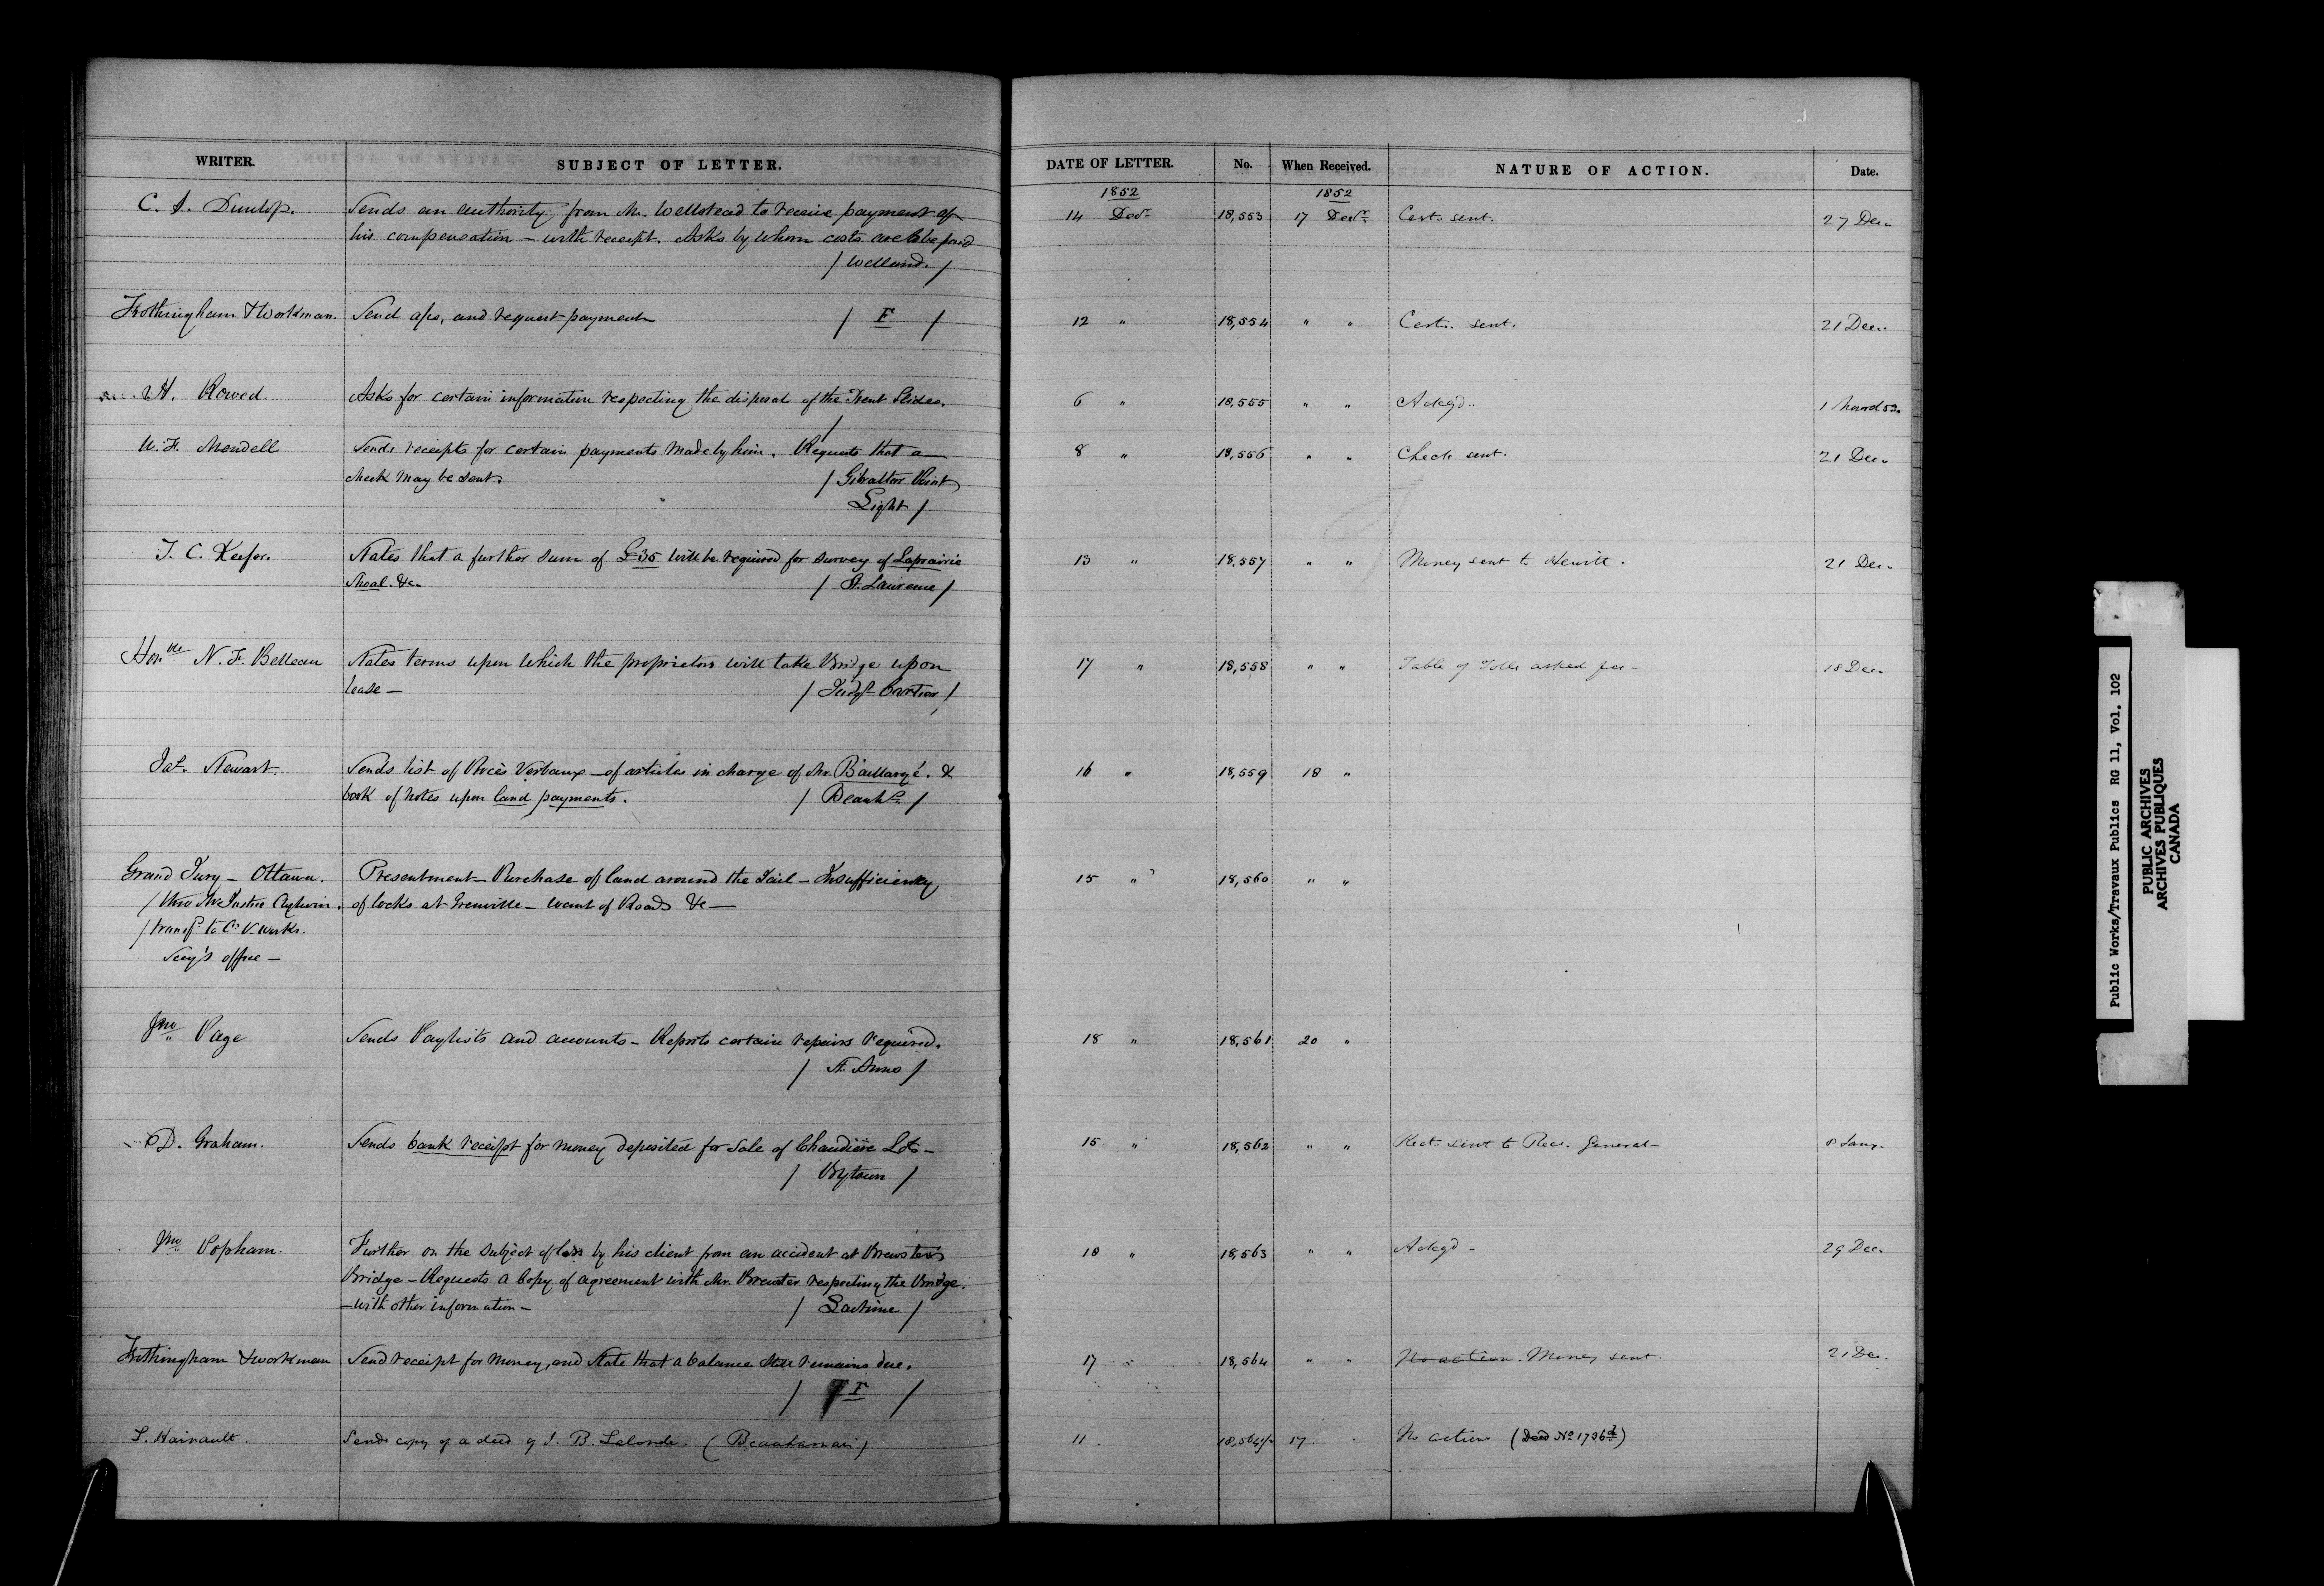 WRITER. SUBJECT OF LETTER. DATE OF LETTER. No. When Received. NATURE OF ACTION. Date.
1852 1852
C. S. Dunlop. Sends an authority from Mr. Wellstead to receive payment of 14 Decr. 18,553 17 Decr. Cert. sent. 27 Dec.
his compensation – with receipt. Asks by whom costs are to be paid
/ Welland. /
Frothingham & Workman. Send a/cs, and request payment / F / 12 " 18,554 " " Cert. sent. 21 Dec.
H. Rowed Asks for certain information respecting the disposal of the Trent Slides. 6 " 18,555 " " Ackgd. 1 March 53.
/
W. F. Mendell Sends receipts for certain payments made by him. Requests that a 8 " 18,556 " " Check sent. 21 Dec.
check may be sent. / Gibraltar Point
Light /
T. C. Keefer. States that a further sum of £35 will be required for survey of Laprairie 13 " 18,557 " " Money sent to Hewitt. 21 Dec.
Shoal. &c. / St. Lawrence /
Honble N. F. Belleau States terms upon which the proprietors will take Bridge upon 17 " 18,558 " " Table of Tolls asked for – 18 Dec.
lease – / Judge Cartier /
Jas. Stewart. Sends list of Procès Verbaux – of articles in charge of Mr. Baillargé. & 16 " 18,559 18 "
book of notes upon land payments. / Beauhs. /
Grand Jury – Ottawa. Presentment – Purchase of land around the Jail – Insufficiency 15 " 18,560 " "
/ thro Mr Justice Aylwin. of locks at Grenville – want of Roads &c –
/ transfd to P. Works.
Secy's office –
Jno. Page Sends Paylists and accounts – Reports certain repairs required. 18 " 18,561 20 "
/ St. Anns /
D. Graham. Sends bank receipt for money deposited for sale of Chaudière Lots – 15 " 18,562 " " Rect. sent to Recr. General – 8 Jany.
/ Bytown /
Jno. Popham. Further on the subject of loss by his client from an accident at Brewster's 18 " 18,563 " " Ackgd – 29 Dec.
Bridge – Requests a copy of agreement with Mr. Brewster respecting the Bridge.
– with other information – / Lachine /
Frothingham & Workman Send receipt for money, and state that a balance still remains due. 17 " 18,564 " " No action. Money sent. 21 Dec.
/ F /
S. Hainault. Sends copy of a deed of J. B. Lalonde. (Beauharnois) 11 18,564½ 17 No action (Deed No. 1736)
Public Works/Travaux Publics RG 11, Vol. 102
PUBLIC ARCHIVES
ARCHIVES PUBLIQUES
CANADA